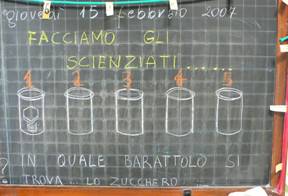 giovedì 15 febbraio 2007
FACCIAMO GLI
SCIENZIATI......
1 2 3 4 5
? IN QUALE BARATTOLO SI
TROVA...LO ZUCCHERO